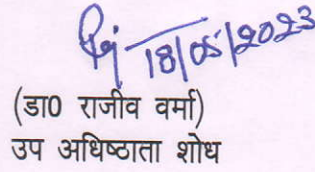 18/05/2023
(डा0 राजीव वर्मा)
उप अधिष्ठाता शोध